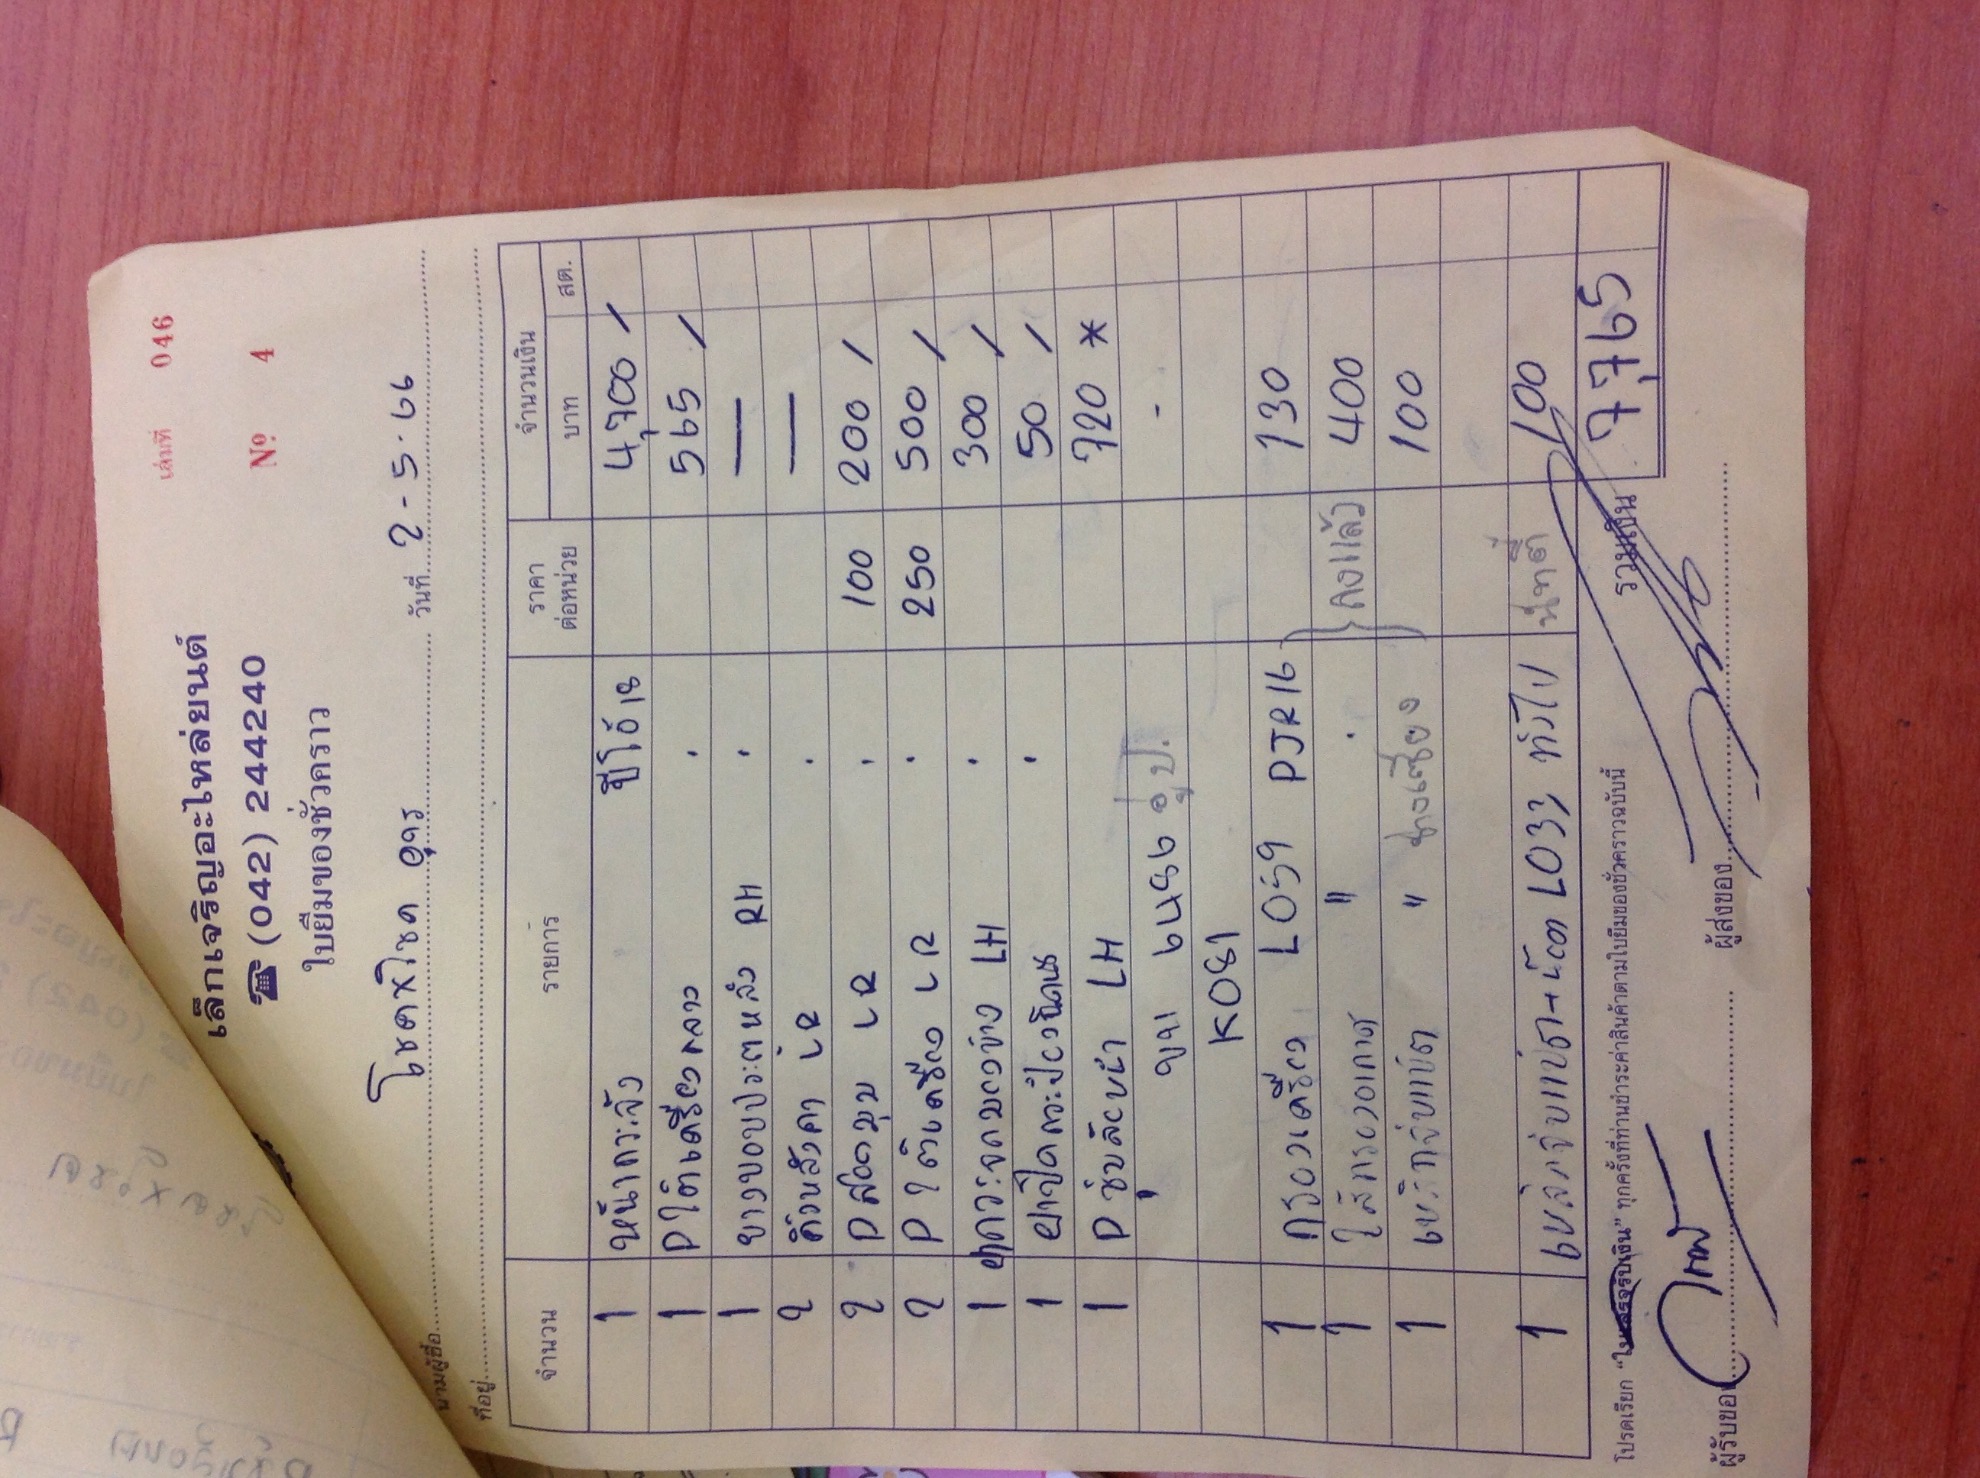 เล่มที่ 046
เล็กเจริญอะไหล่ยนต์
☎ (042) 244240 Nº 4
ใบยืมของชั่วคราว
นามผู้ซื้อ โชคxโชค อุดร วันที่ 2-5-66
ที่อยู่
จำนวน รายการ ราคาต่อหน่วย จำนวนเงิน
บาท สต.
1 หน้ากระจัง รีโอ้เช 4,700 /
1 P ใต้เครื่องกลาง . 565 /
1 ยางขอบประตูหลัง RH . —
2 คิ้วหลังคา LR . —
2 P LR . 100 200 /
2 P ใต้เครื่อง LR . 250 500 /
1 LH . 300 /
1 . 50 /
1 P ซุ้มล้อหน้า LH 720 *
ขน 6486 อู่ป. -
K081
1 กรองเครื่อง L059 PJR16 130
1 ไส้กรองอากาศ " . ลงแล้ว 400
1 " 100
1 L033 ทั่วไป 100
โปรดเรียก “ใบเสร็จรับเงิน” ทุกครั้งที่ท่านชำระค่าสินค้าตามใบยืมของชั่วคราวฉบับนี้ รวมเงิน 7,765
ผู้รับของ ผู้ส่งของ